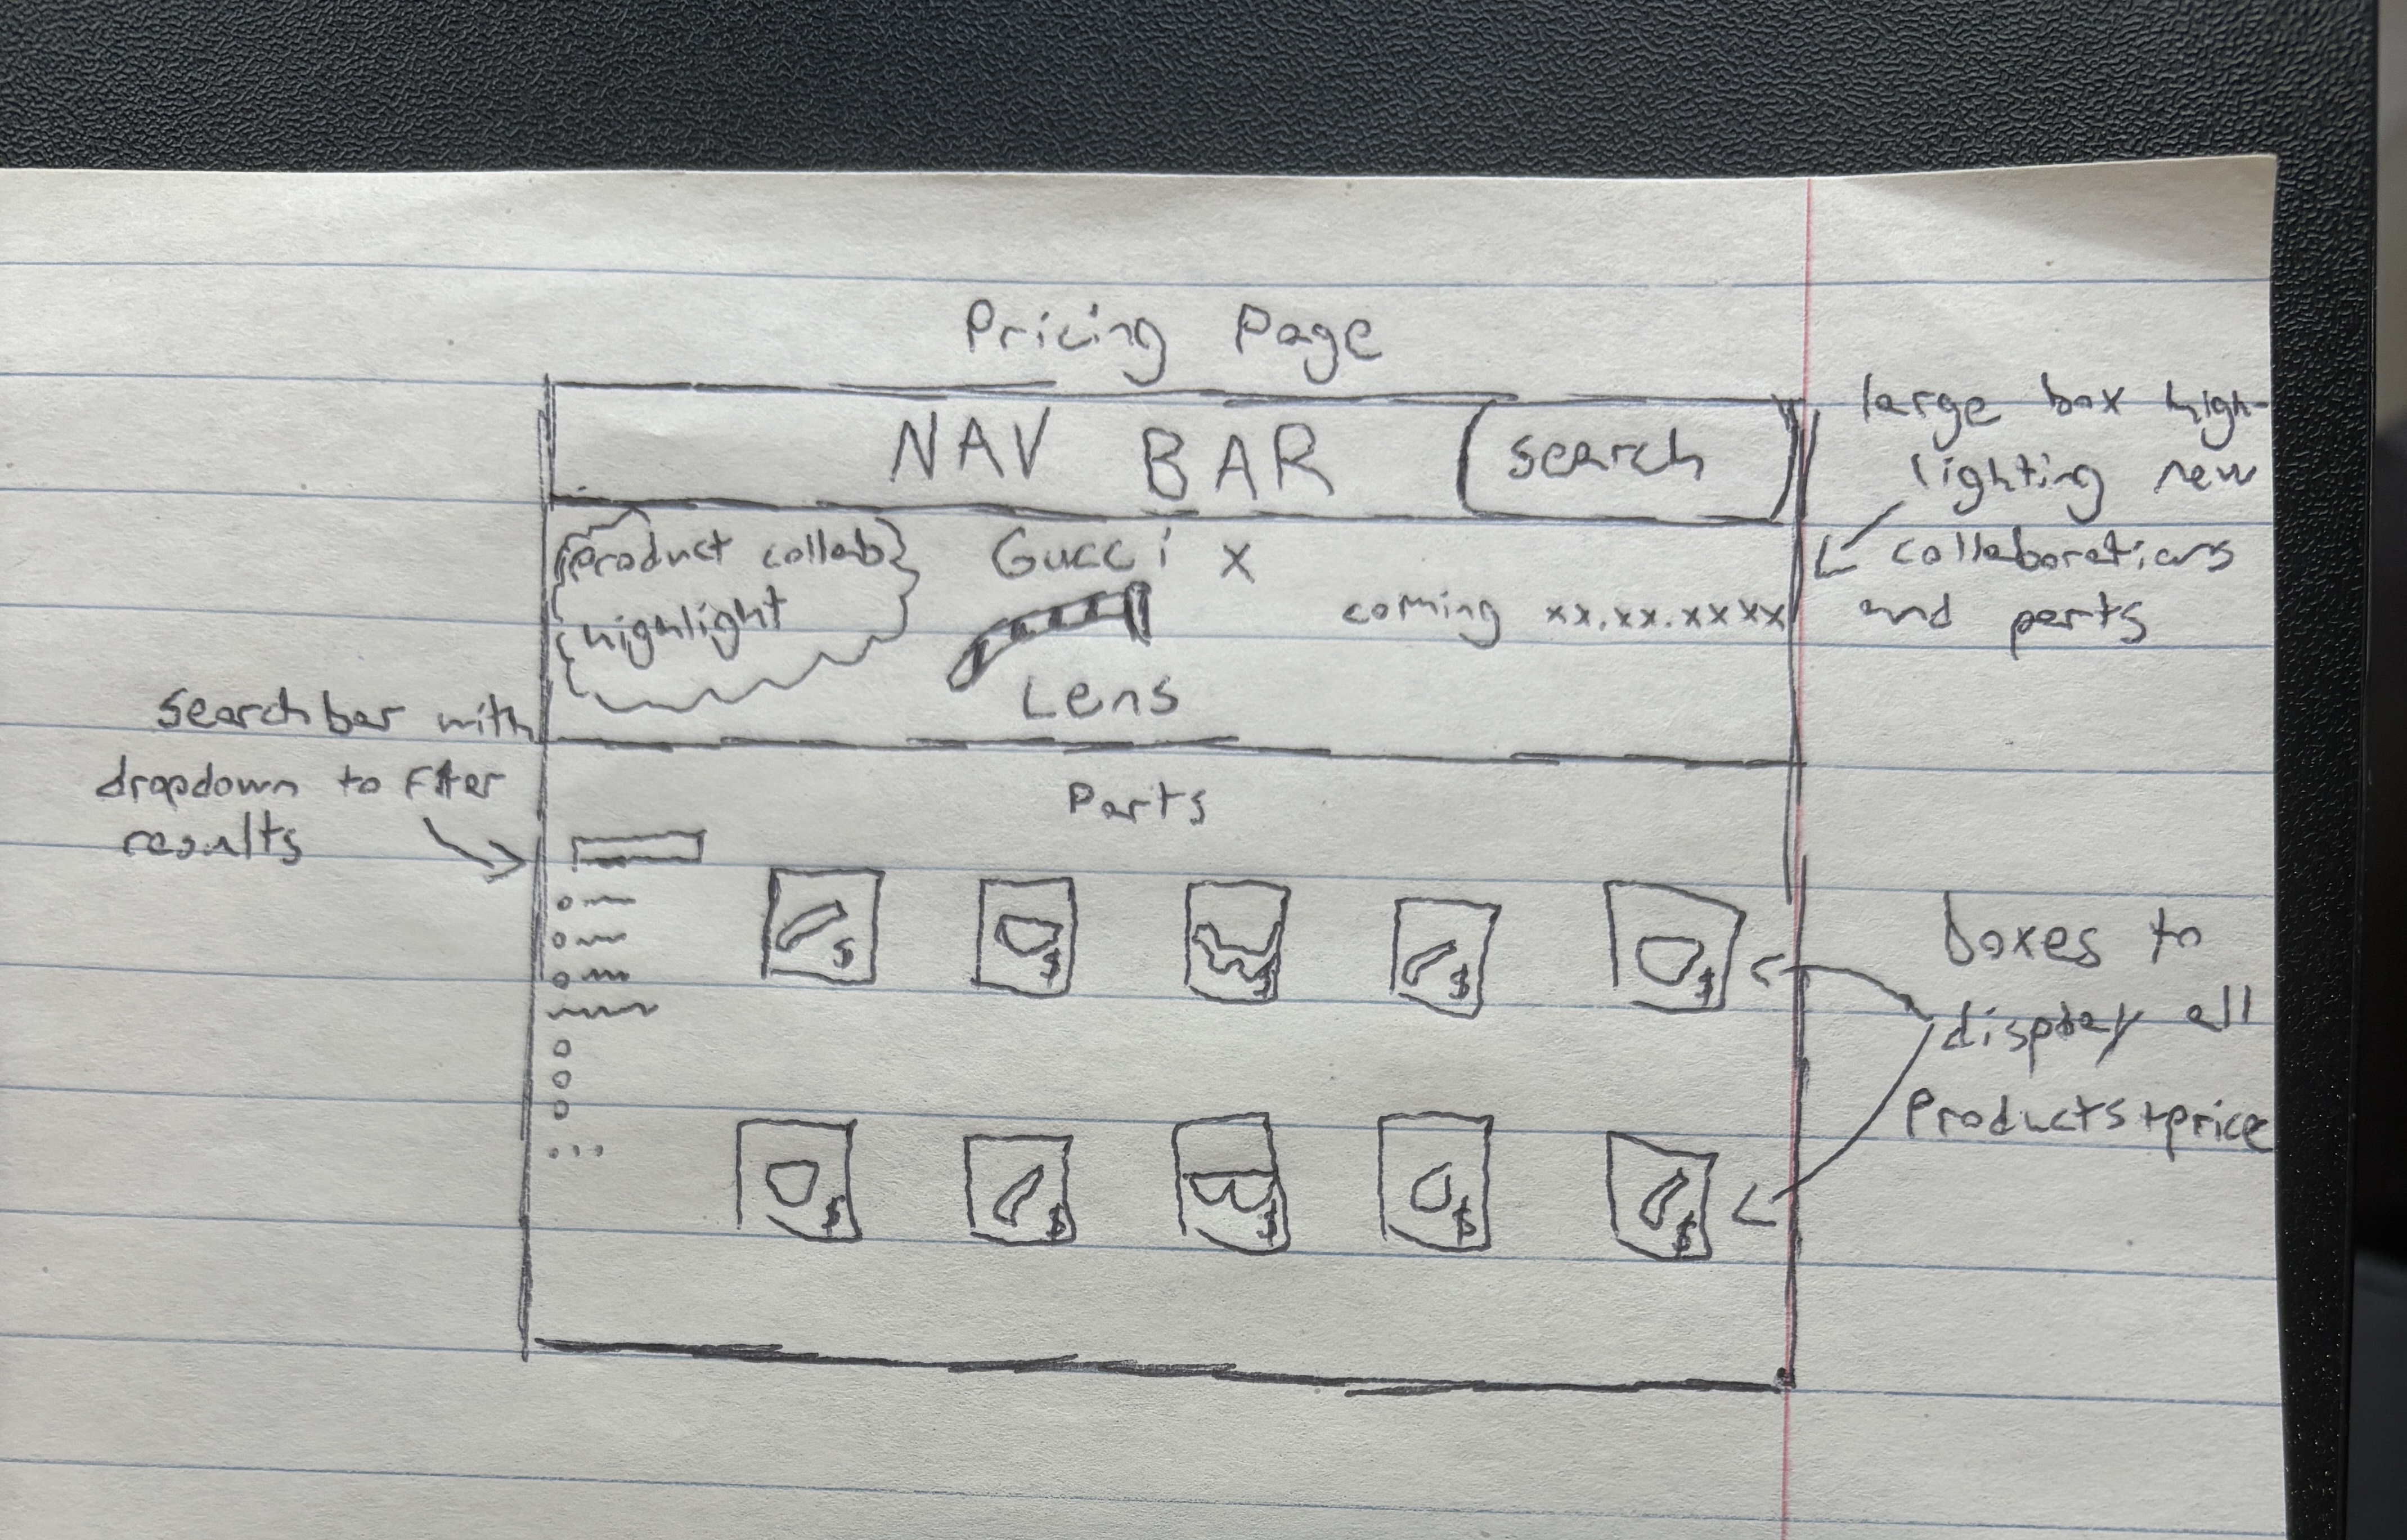 Pricing Page
NAV BAR
search
large box high-
lighting new
collaborations
and parts
product collab
highlight
Gucci x
Lens
coming xx.xx.xxxx
search bar with
dropdown to filter
results
Parts
$ $ $ $ $
...
$ $ $ $ $
boxes to
display all
Products + price